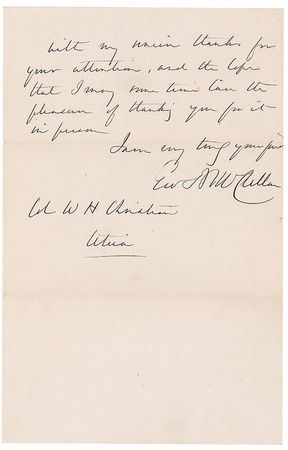 with my sincere thanks for
your attention, and the hope
that I may some time have the
pleasure of thanking you for it
in person
I am very truly yours
Geo B McClellan
Col W H Christian
Utica